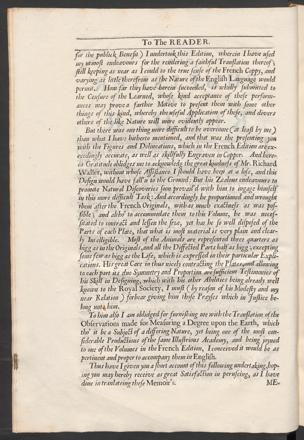 To The READER.
for the publick Benefit) I undertook this Edition, wherein I have used
my utmost endeavours for the rendering a faithful Translation thereof;
still keeping as near as I could to the true sense of the French Coppy, and
varying as little therefrom as the Nature of the English Language would
permit. How far I have herein succeeded, is wholly submitted to
the Censure of the Learned, whose kind acceptance of these perform-
ances may prove a farther Motive to present them with some other
things of this kind, whereby the useful Application of these, and divers
others of the like Nature will more evidently appear.
But there was one thing more difficult to be overcome (at least by me)
than what I have hitherto mentioned, and that was the presenting you
with the Figures and Delineations, which in the French Edition are ex-
ceedingly accurate, as well as skilfully Engraven in Copper. And here-
in Gratitude obliges me to acknowledge the great kindness of Mr. Richard
Waller, without whose Assistance I should have been at a loss, and this
Design would have fall'n to the Ground: But his Zealous endeavours to
promote Natural Discoveries soon prevail'd with him to engage himself
in this more difficult Task; And accordingly he proportioned and wrought
them after the French Originals, with as much exactness as was pos-
sible; and altho' to accommodate them to this Volume, he was neces-
sitated to contract and lessen the size, yet has he so well design'd all the
Parts of each Plate, that what is most material is very plain and clear-
ly Intelligible. Most of the Animals are represented three quarters as
bigg as in the Originals, and all the Dissected Parts half as bigg, excepting
some few as bigg as the Life, which is expressed in their particular Expli-
cations. His great Care in thus nicely contracting the Plates, and allowing
to each part its due Symmetry and Proportion are sufficient Testimonies of
his Skill in Designing, which with his other Abilities being already well
known to the Royal Society, I must (by reason of his Modesty and my
near Relation) forbear giving him those Prayses which in Justice be-
long unto him.
To him also I am obliedged for furnishing me with the Translation of the
Observations made for Measuring a Degree upon the Earth, which
tho' it be a Subject of a differing Nature, yet being one of the most con-
siderable Productions of the same Illustrious Academy, and being joyned
to one of the Volumes in the French Edition, I conceived it would be as
pertinent and proper to accompany them in English.
Thus have I given you a short account of this following undertaking, hop-
ing you may hereby receive as great Satisfaction in perusing, as I have
done in translating these Memoir's. ME-